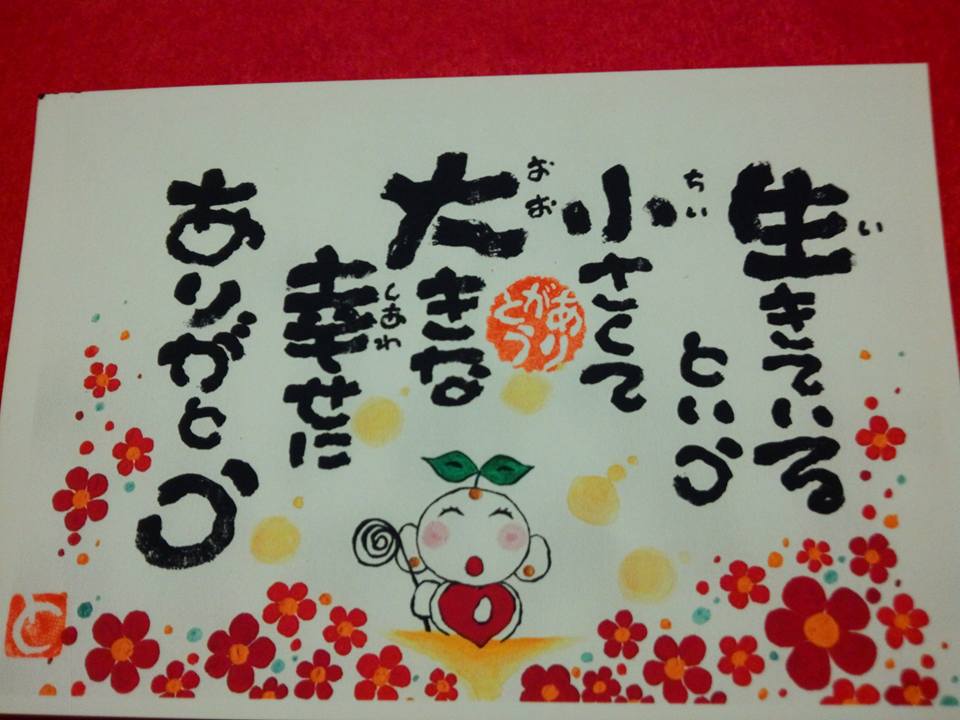 生きている
という
小さくて
大きな
幸せに
ありがとう
い
ちい
おお
しあわ
ありがとう